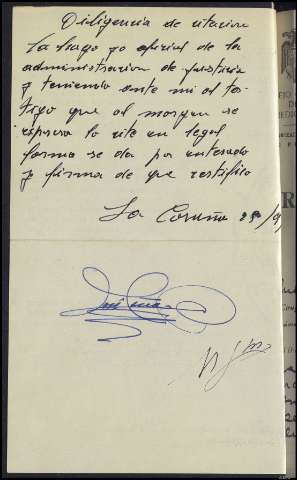 Diligencia de citacion
La hago yo oficial de la
administracion de justicia
y teniendo ante mi al tes-
tigo que al margen se
expresa lo cite en legal
forma se da por enterado
y firma de que certifico
La Coruña